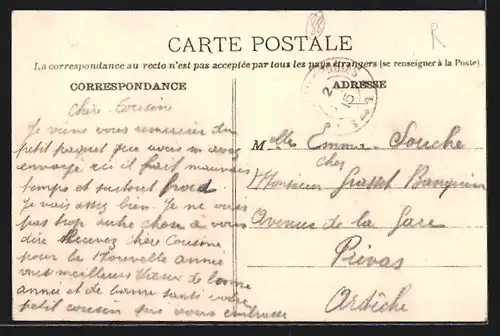 CARTE POSTALE
La correspondance au recto n'est pas acceptée par tous les pays étrangers (se renseigner à la Poste).
CORRESPONDANCE
ADRESSE
R
Chère Cousine
Je viens vous remercier du
petit paquet que vous m avez
envoyé ici il fait mauvais
temps et surtout froid
Je vais assez bien. Je ne vois
pas trop autre chose à vous
dire Recevez chère Cousine
pour la Nouvelle année
mes meilleurs Vœux de bonne
année et de bonne santé votre
petit cousin qui vous embrasse
Melle Emma Souche
chez
Monsieur Grasset Banquier
Avenue de la Gare
Privas
Ardèche